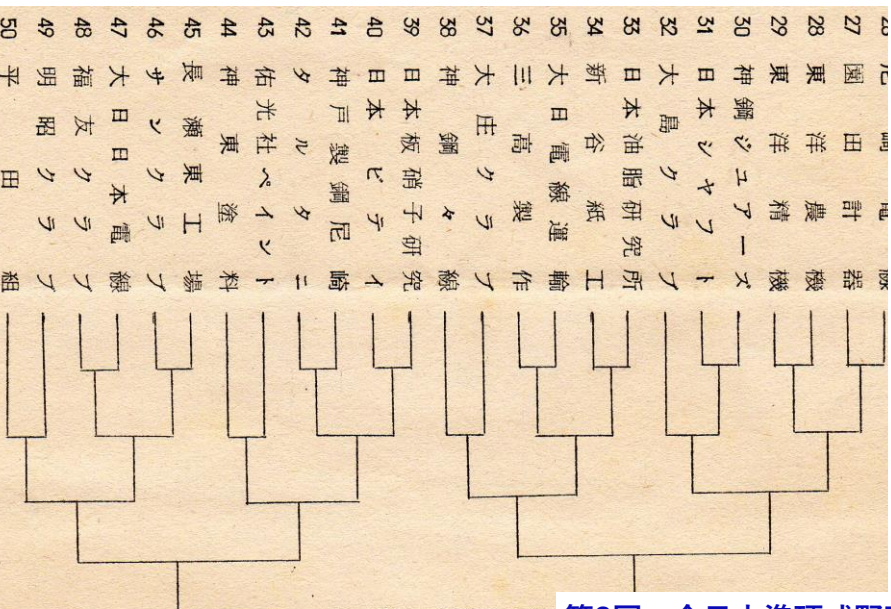 27 園田計器
28 東洋農機
29 東洋精機
30 神鋼ジュアーズ
31 日本シヤフト
32 大島クラブ
33 日本油脂研究所
34 新谷紙工
35 大日電線運輸
36 三高製作
37 大庄クラブ
38 神鋼々線
39 日本板硝子研究
40 日本ビテイ
41 神戸製鋼尼崎
42 タルタニ
43 佑光社ペイント
44 神東塗料
45 長瀬東工場
46 サンクラブ
47 大日日本電線
48 福友クラブ
49 明昭クラブ
50 平田組